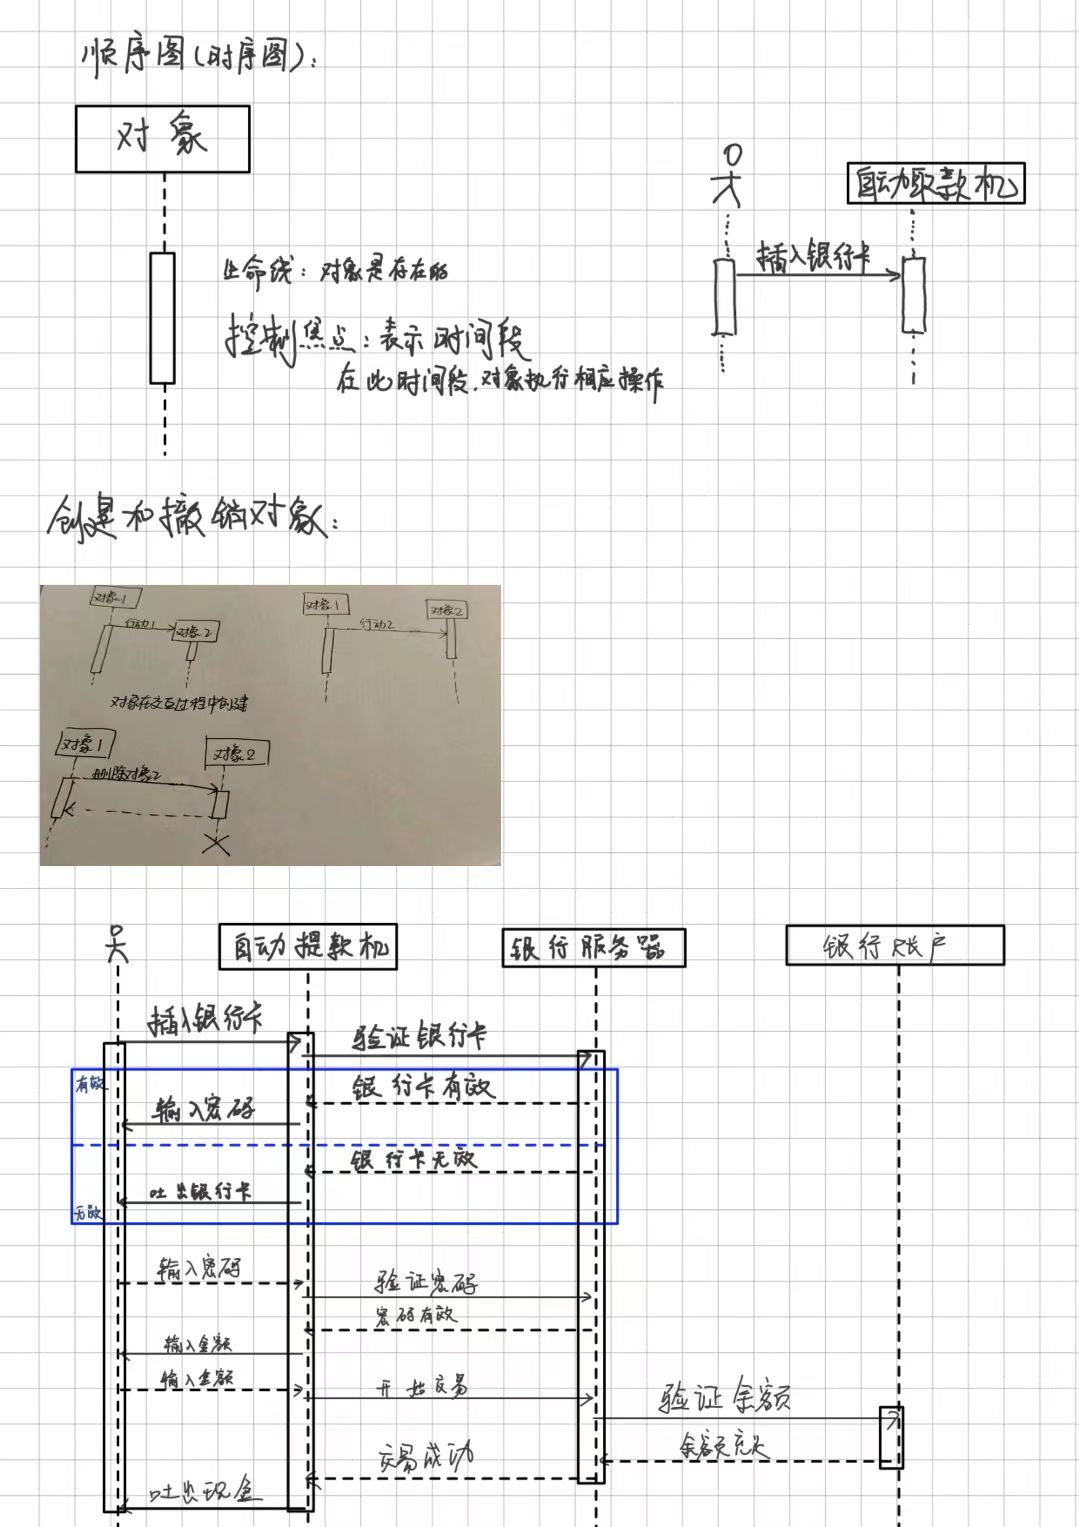 顺序图(时序图):
对象
自动取款机
插入银行卡
生命线: 对象是存在的
控制焦点: 表示时间段
在此时间段,对象执行相应操作
创建和撤销对象:
对象1
对象1
对象2
行动1
对象2
行动2
对象在交互过程中创建
对象1
对象2
删除对象2
自动提款机
银行服务器
银行账户
插入银行卡
验证银行卡
有效
银行卡有效
输入密码
银行卡无效
吐出银行卡
无效
输入密码
验证密码
密码有效
输入金额
输入金额
开始交易
验证余额
余额充足
交易成功
吐出现金